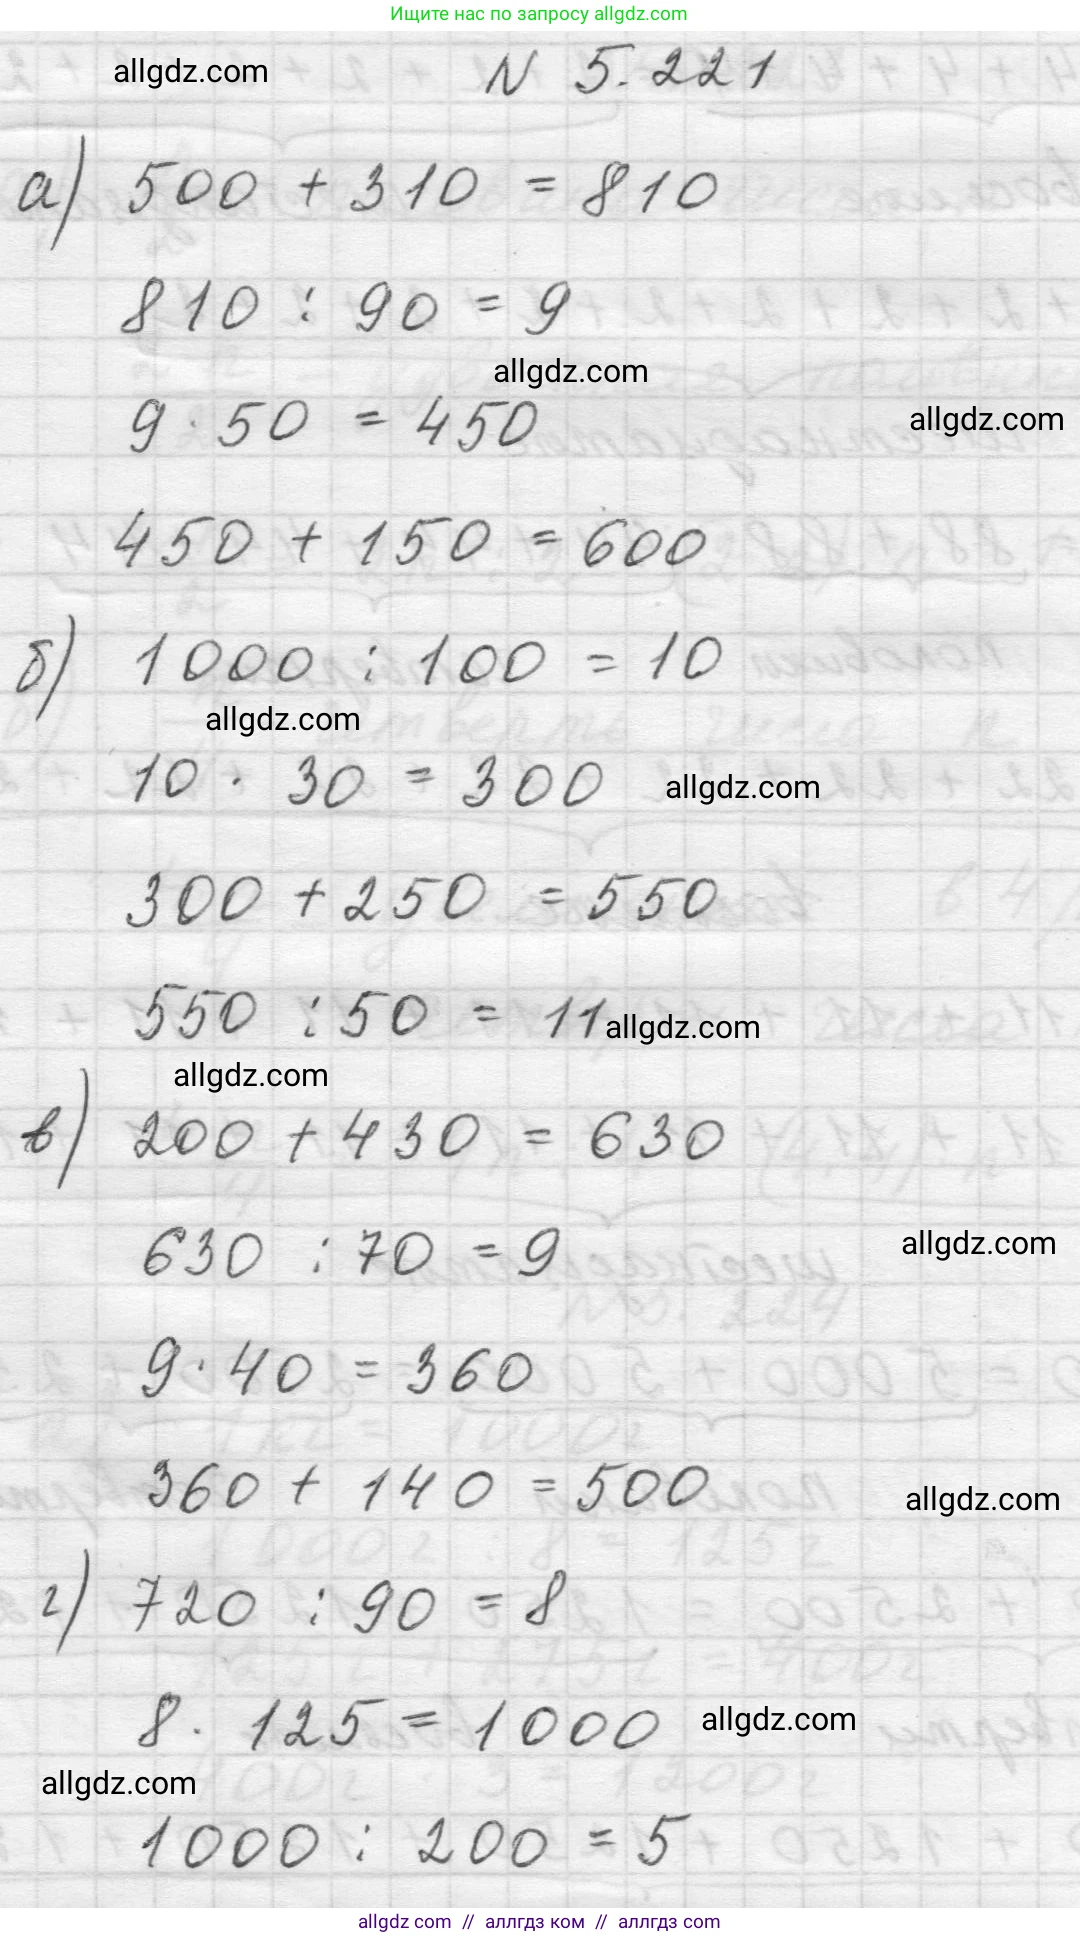 Ищите нас по запросу allgdz.com
allgdz.com
N 5.221
а) 500 + 310 = 810
810 : 90 = 9
allgdz.com
9 · 50 = 450
allgdz.com
450 + 150 = 600
б) 1000 : 100 = 10
allgdz.com
10 · 30 = 300
allgdz.com
300 + 250 = 550
550 : 50 = 11
allgdz.com
allgdz.com
в) 200 + 430 = 630
630 : 70 = 9
allgdz.com
9 · 40 = 360
360 + 140 = 500
allgdz.com
г) 720 : 90 = 8
8 · 125 = 1000
allgdz.com
allgdz.com
1000 : 200 = 5
allgdz com // аллгдз ком // аллгдз com